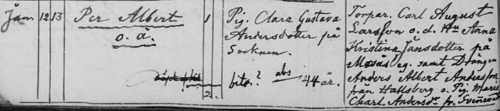 Jan. 12 13 Per Albert 1 Pig. Clara Gustava Torpar. Carl August
o. ä. Andersdotter på Larsson o. d. Hu Anna
Socknen. Kristina Jansdotter på
Mosåsbg. samt Drängen
bits.? abs 44 år. Anders Albert Andersson
2. från Hallsberg o. Pig. Maria
Charl. Andersdr fr.